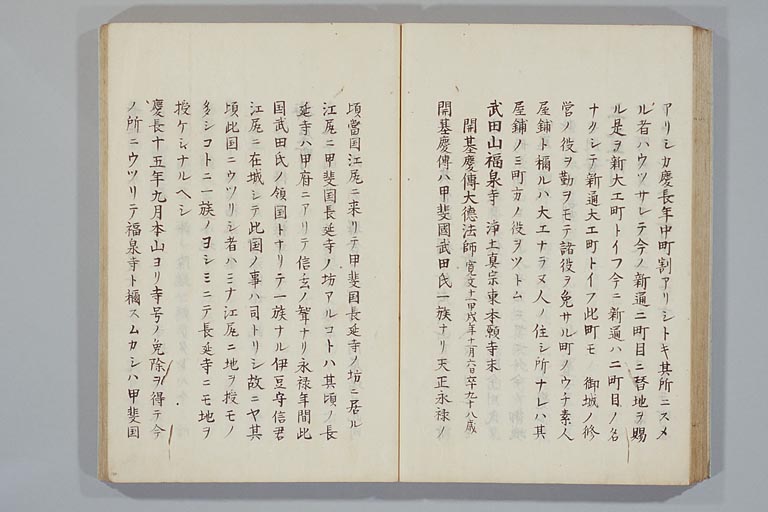 アリシカ慶長年中町割アリシトキ其所ニスメ
ル者ハウツサレテ今ノ新通二町目ニ替地ヲ賜
ル是ヲ新大工町トイフ今ニ新通ハ二町目ノ名
ナクシテ新通大工町トイフ此町モ 御城ノ修
営ノ役ヲ勤ヲモテ諸役ヲ免サル町ノウチ素人
屋鋪ト稱ルハ大工ナラヌ人ノ住シ所ナレハ其
屋鋪ノミ町方ノ役ヲツトム
武田山福泉寺 浄土真宗東本願寺末
開基慶傳大徳法師寛文十一甲戌年十月六日卒九十八歳
開基慶傳ハ甲斐國武田氏一族ナリ天正永禄ノ
頃當国江尻ニ来リテ甲斐国長延寺ノ坊ニ居ル
江尻ニ甲斐国長延寺ノ坊アルコトハ其頃ノ長
延寺ハ甲府ニアリテ信玄ノ聟ナリ永禄年間此
国武田氏ノ領国トナリテ一族ナル伊豆守信君
江尻ニ在城シテ此国ノ事ハ司トリシ故ニヤ其
頃此国ニウツリシ者ハミナ江尻ニ地ヲ授モノ
多シコトニ一族ノヨシミニテ長延寺ニモ地ヲ
授ケシナルヘシ
慶長十五年九月本山ヨリ寺号ノ免除ヲ得テ今
ノ所ニウツリテ福泉寺ト稱スムカシハ甲斐国